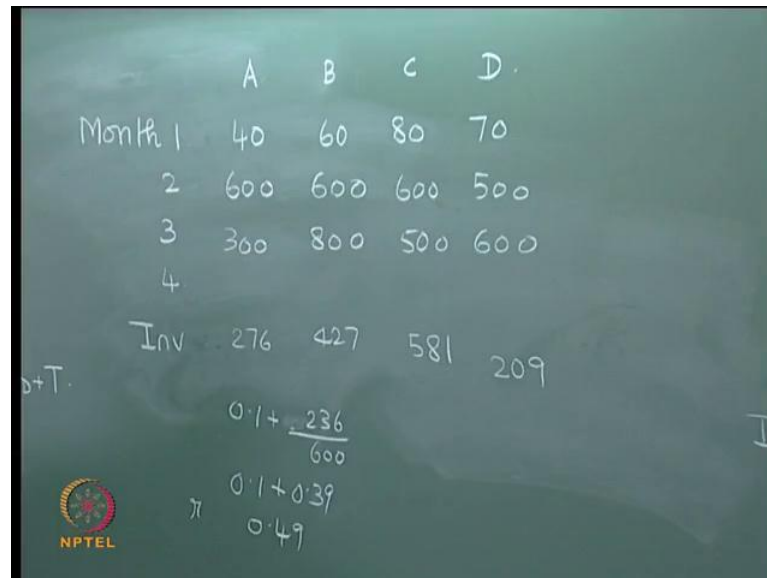 A B C D.
Month 1 40 60 80 70
2 600 600 600 500
3 300 800 500 600
4.
Inv 276 427 581 209
D+T.
0.1 + .236
600
0.1 + 0.39
r 0.49
NPTEL
I